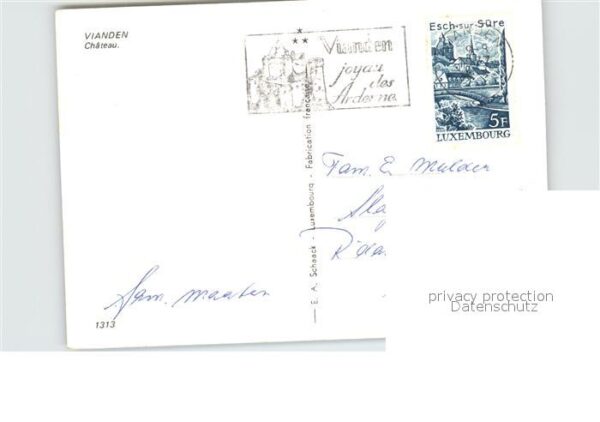 VIANDEN
Château.
Vianden
joyau
des
Ardennes
Esch-sur-Sûre
5F
LUXEMBOURG
E. A. Schaack - Luxembourg - Fabrication française
Fam. E. Mulder
Fam. Maaten
1313
privacy protection
Datenschutz